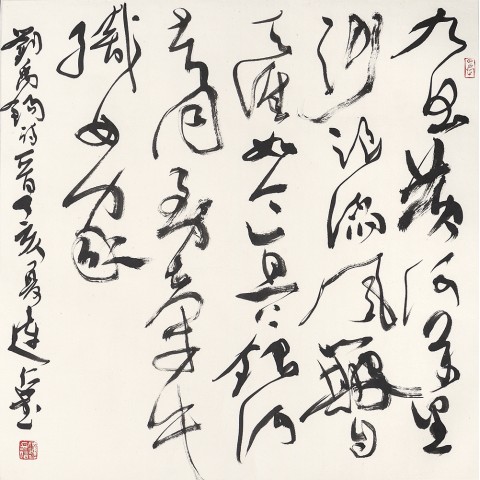 九曲黄河万里
沙浪淘风簸自
天涯如今直上银河
去同到牵牛
織女家
劉禹錫詩一首丁亥夏